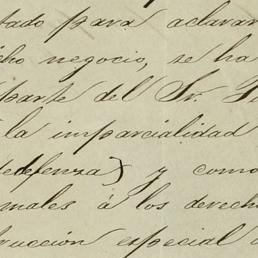 tado para aclarar
cho negocio, se ha
parte del Sr.
la imparcialidad
defenza) y como
males á los derech
rucción especial